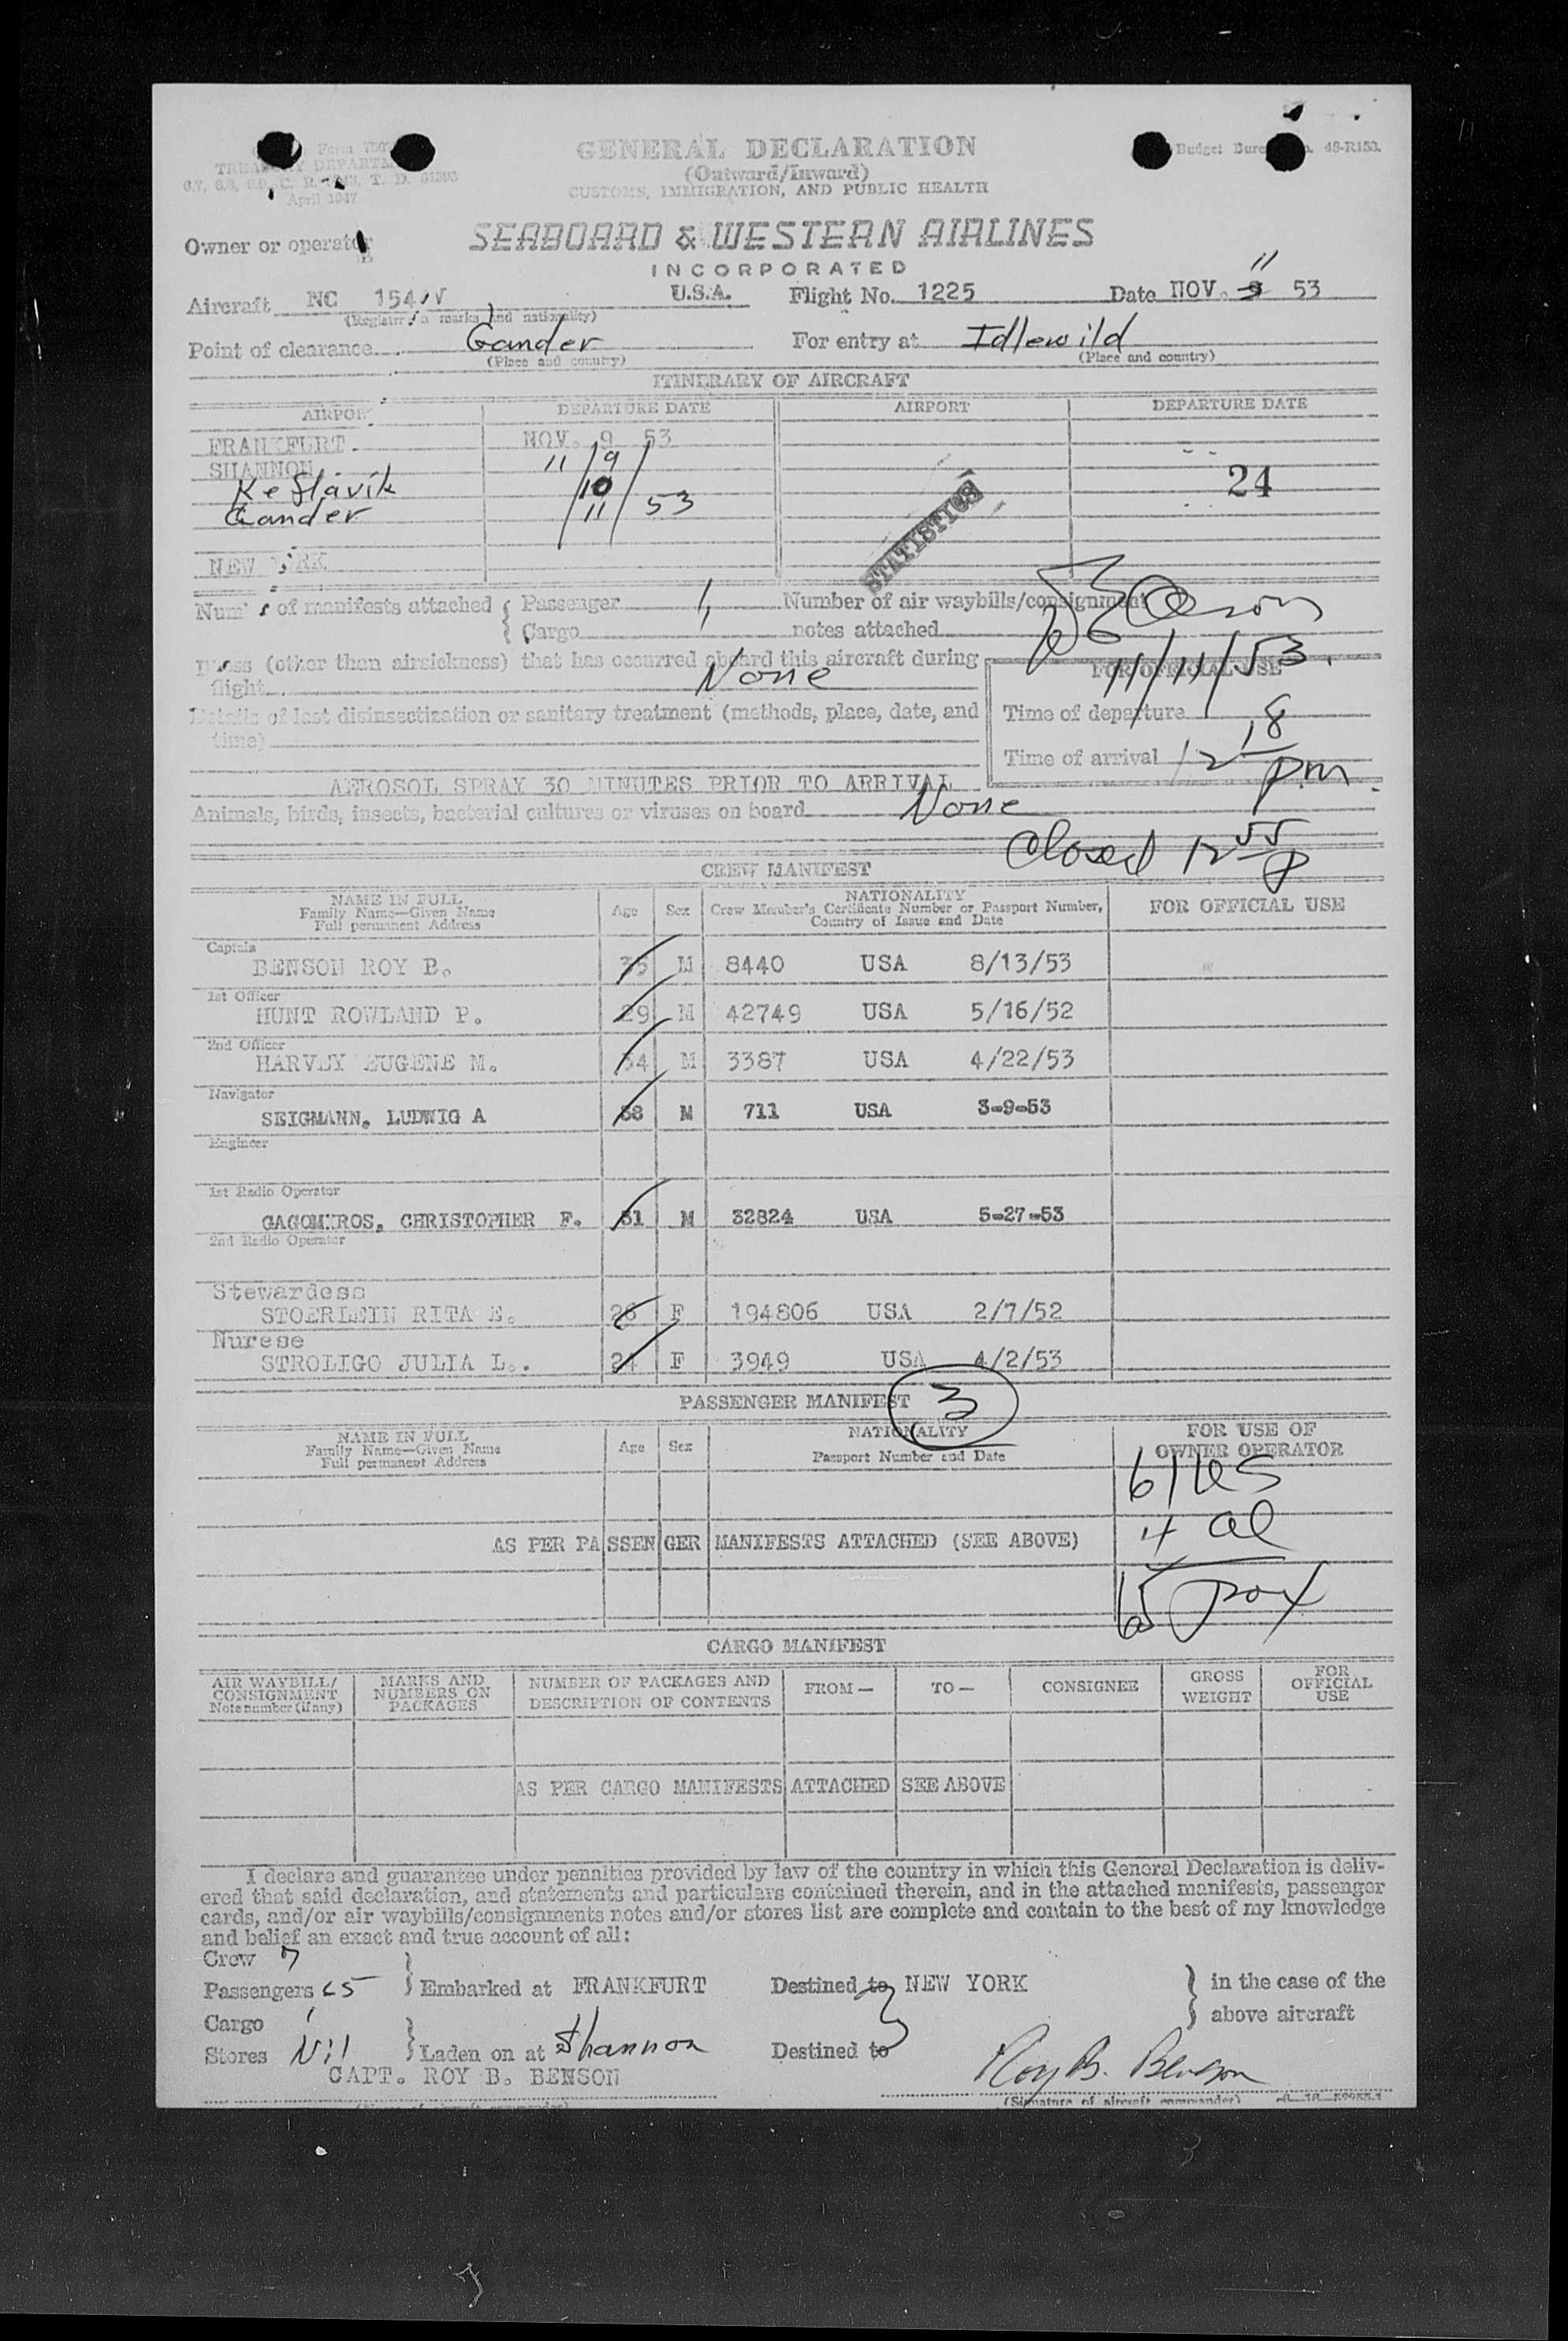 GENERAL DECLARATION
(Outward/Inward)
CUSTOMS, IMMIGRATION, AND PUBLIC HEALTH
Form
TREASURY DEPARTMENT
April 1947
Budget Bureau No. 48-R153.
Owner or operator
SEABOARD & WESTERN AIRLINES
INCORPORATED
Aircraft NC 154 V U.S.A. Flight No. 1225 Date NOV. 9 11 53
(Registry marks and nationality)
Point of clearance Gander For entry at Idlewild
(Place and country) (Place and country)
ITINERARY OF AIRCRAFT
AIRPORT DEPARTURE DATE AIRPORT DEPARTURE DATE
FRANKFURT NOV. 9 53
SHANNON 11/9/
Keflavik /10/ 24
Gander /11/ 53
STATISTICS
NEW YORK
Number of manifests attached { Passenger 1 Number of air waybills/consignment
{ Cargo 1 notes attached
11/11/53.
Illness (other than airsickness) that has occurred aboard this aircraft during
flight None
FOR OFFICIAL USE
Details of last disinsectization or sanitary treatment (methods, place, date, and
time)
Time of departure
Time of arrival 12 18 pm
AEROSOL SPRAY 30 MINUTES PRIOR TO ARRIVAL
Animals, birds, insects, bacterial cultures or viruses on board None
Closed 12 55 p
CREW MANIFEST
NAME IN FULL
Family Name—Given Name
Full permanent Address
Age Sex
NATIONALITY
Crew Member's Certificate Number or Passport Number,
Country of Issue and Date
FOR OFFICIAL USE
Captain
BENSON ROY B. 35 M 8440 USA 8/13/53
1st Officer
HUNT ROWLAND P. 29 M 42749 USA 5/16/52
2nd Officer
HARVEY EUGENE M. 34 M 3387 USA 4/22/53
Navigator
SEIGMANN, LUDWIG A 38 M 711 USA 3-9-53
Engineer
1st Radio Operator
GAGOMIROS, CHRISTOPHER F. 31 M 32824 USA 5-27-53
2nd Radio Operator
Stewardess
STOERLEIN RITA E. 26 F 194806 USA 2/7/52
Nurese
STROLIGO JULIA L.. 24 F 3949 USA 4/2/53
PASSENGER MANIFEST 3
NAME IN FULL
Family Name—Given Name
Full permanent Address
Age Sex
NATIONALITY
Passport Number and Date
FOR USE OF
OWNER OPERATOR
61 US
4 al
AS PER PASSENGER MANIFESTS ATTACHED (SEE ABOVE)
65 pax
CARGO MANIFEST
AIR WAYBILL/
CONSIGNMENT
Note number (if any)
MARKS AND
NUMBERS ON
PACKAGES
NUMBER OF PACKAGES AND
DESCRIPTION OF CONTENTS
FROM— TO— CONSIGNEE
GROSS
WEIGHT
FOR
OFFICIAL
USE
AS PER CARGO MANIFESTS ATTACHED SEE ABOVE
I declare and guarantee under penalties provided by law of the country in which this General Declaration is deliv-
ered that said declaration, and statements and particulars contained therein, and in the attached manifests, passenger
cards, and/or air waybills/consignments notes and/or stores list are complete and contain to the best of my knowledge
and belief an exact and true account of all:
Crew 7
Passengers 65 } Embarked at FRANKFURT Destined to NEW YORK } in the case of the
Cargo 1 above aircraft
Stores Nil } Laden on at Shannon Destined to
CAPT. ROY B. BENSON Roy B. Benson
(Signature of aircraft commander)